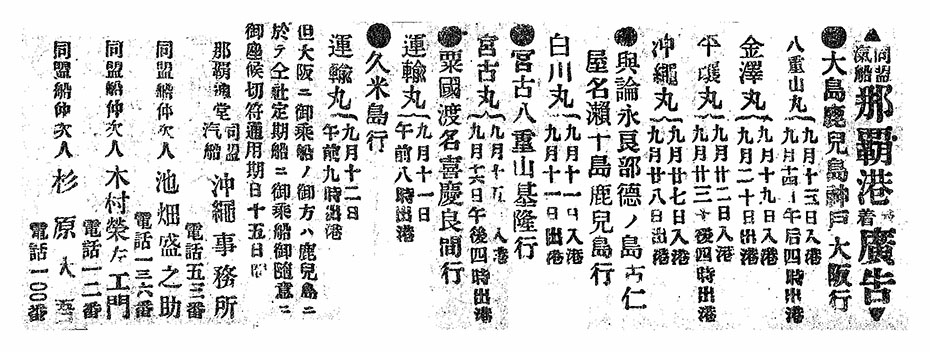 ▲同盟汽船那覇港発着廣告▼
●大島鹿兒島神戸大阪行
八重山丸 九月十三日入港
九月十四日午后四時出港
金澤丸 九月十九日入港
九月二十日出港
平壤丸 九月廿二日入港
九月廿三日午後四時出港
沖繩丸 九月廿七日入港
九月廿八日出港
●與論永良部德ノ島古仁
屋名瀬十島鹿兒島行
白川丸 九月十一日入港
九月十一日出港
●宮古八重山基隆行
宮古丸 九月十五日入港
九月十六日午後四時出港
●粟國渡名喜慶良間行
運輸丸 九月十一日
午前八時出港
●久米島行
運輸丸 九月十二日
午前九時出港
但大阪ニ御乘船ノ御方ハ鹿兒島ニ
於テ仝社定期船ニ御乘船御隨意ニ
御座候切符通用期日十五日間
那覇通堂 同盟汽船 沖繩事務所
電話五三番
同盟船仲次人 池畑盛之助
電話一三六番
同盟船仲次人 木村榮左工門
電話一二番
同盟船仲次人 杉原大吾
電話一〇〇番